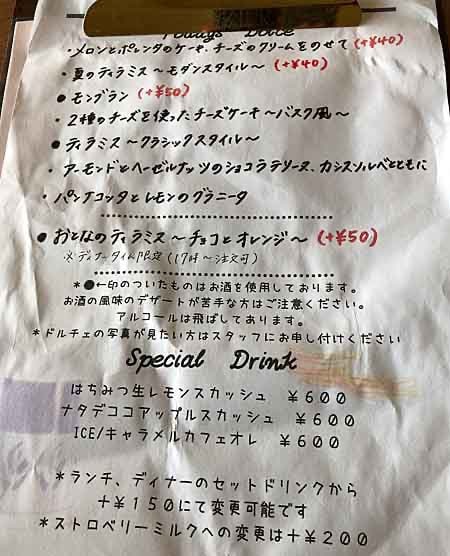 Todays Dolce
・メロンとポレンタのケーキ、チーズのクリームをのせて (+¥40)
・夏のティラミス〜モダンスタイル〜 (+¥40)
●モンブラン (+¥50)
・2種のチーズを使ったチーズケーキ〜バスク風〜
●ティラミス〜クラシックスタイル〜
・アーモンドとヘーゼルナッツのショコラテリーヌ、カシスソルベとともに
・パンナコッタとレモンのグラニータ
●おとなのティラミス〜チョコとオレンジ〜 (+¥50)
※ディナータイム限定(17時〜注文可)
*●←印のついたものはお酒を使用しております。
お酒の風味のデザートが苦手な方はご注意ください。
アルコールは飛ばしてあります。
*ドルチェの写真が見たい方はスタッフにお申し付けください
Special Drink
はちみつ生レモンスカッシュ ¥600
ナタデココアップルスカッシュ ¥600
ICE/キャラメルカフェオレ ¥600
*ランチ、ディナーのセットドリンクから
+¥150にて変更可能です
*ストロベリーミルクへの変更は+¥200